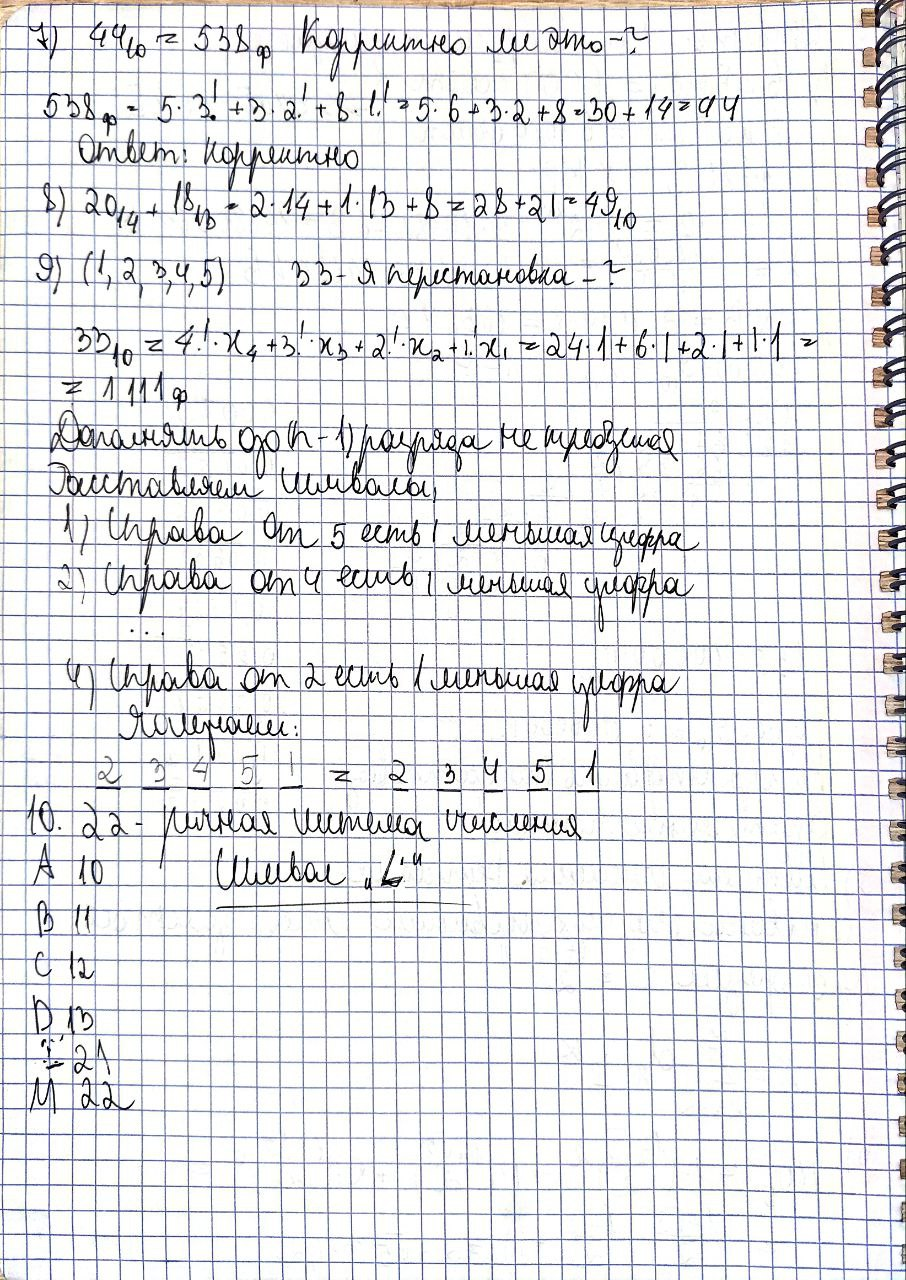 7) 44₁₀ = 538ф Корректно ли это - ?
538ф = 5·3! + 3·2! + 8·1! = 5·6 + 3·2 + 8 = 30 + 14 = 44
Ответ: корректно
8) 20₁₄ + 18₁₃ = 2·14 + 1·13 + 8 = 28 + 21 = 49₁₀
9) (1, 2, 3, 4, 5) 33-я перестановка - ?
33₁₀ = 4!·x₄ + 3!·x₃ + 2!·x₂ + 1!·x₁ = 24·1 + 6·1 + 2·1 + 1·1 =
= 1111ф
Дополнять до (n-1) разряда не требуется
Расставляем символы,
1) Справа от 5 есть 1 меньшая цифра
2) Справа от 4 есть 1 меньшая цифра
...
4) Справа от 2 есть 1 меньшая цифра
Получаем:
2 3 4 5 1 = 2 3 4 5 1
10. 22-ричная система счисления
A 10 Символ „L"
B 11
C 12
D 13
21
M 22